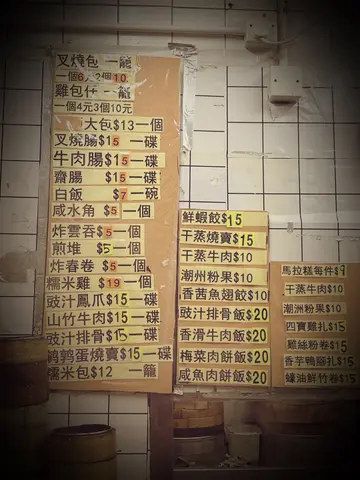 叉燒包 一籠
一個6元2個10.
雞包仔 一籠
一個4元3個10元
大包$13一個
叉燒腸$15 一碟
牛肉腸$15一碟
齋腸 $15一碟
白飯 $7一碗
咸水角 $5一個
炸雲吞$5一個
煎堆 $5一個
炸春卷$5一個
糯米雞 $19一個
豉汁鳳爪$15一碟
山竹牛肉$15一碟
豉汁排骨$15一碟
鵪鶉蛋燒賣$15一碟
糯米包$12 一籠
鮮蝦餃$15
干蒸燒賣$15
干蒸牛肉$10
潮州粉果$10
香茜魚翅餃$10
豉汁排骨飯$20
香滑牛肉飯$20
梅菜肉餅飯$20
咸魚肉餅飯$20
馬拉糕每件$9
干蒸牛肉$10
潮洲粉果$10
四寶雞扎$15
雞絲粉卷$15
香芋鴨腳扎$15
蠔油鮮竹卷$15